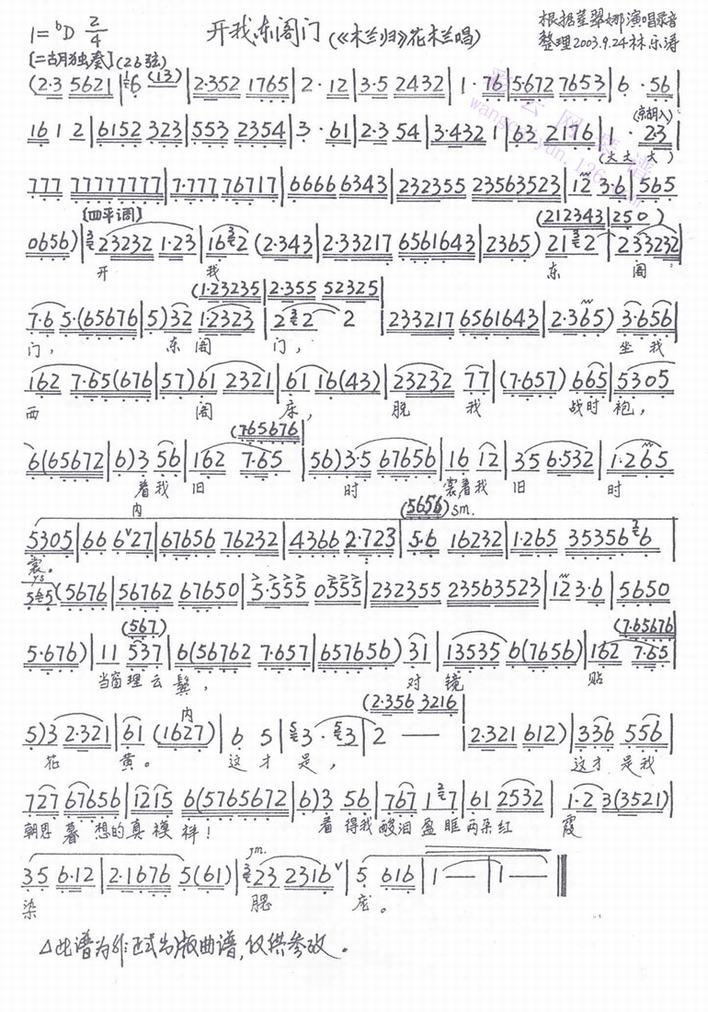 1=ᵇD 2/4 开我东阁门(《木兰归》花木兰唱) 根据董翠娜演唱录音
整理2003.9.24林乐涛
[二胡独奏](26弦)
(2·3 5621|6 (13)|2·352 1765|2·12|3·5 2432|1·76|5672 7653|6·56|
(京胡入)
1612|6152 323|553 2354|3·61|2·3 54|3·432|63 2176|·23|
(大大 大)
777 77777777|7·777 76717|6666 6343|232355 23563523|12 3·6|565
[四平调] (212343|250)
0656)|23232 1·23|162 (2·343|2·33217 6561643|2365) 2132|233232|
开 我 东 阁
(1·23235|2·355 52325|
7·6 5·(65676|5)32 1·2323|232 2|233217 6561643|2·365) 3·656|
门, 东 阁 门, 坐 我
162 7·65(676|57)61 2321|61 16(43)|23232 77|(7·657) 665|5305|
西 阁 床, 脱 我 战时 袍,
(7·65676|
6(65672|6)3 56|162 7·65|56)3·5 67656|16 12|35 6·532|1·265|
着我 旧 时 裳着我 旧 时
内 (5656) sm.
5305|66 627|67656 76232|4366 2·723|5·6 16232|1·265 353566|
裳。
55(5676|56762 67650|5·555 0555|232355 23563523|12 3·6|5650
(567) (7·65676
5·676)|11 537|6(56762 7·657|657656) 31|13535 6(7656)|162 7·65|
当窗理云鬓, 对 镜 贴
内 (2·356 3216|
5)3 2·321|61 (1627)|6 5|3·3|2 —|2·321 612)|336 556|
花 黄。 这才 是, 这才 是我
727 67656|1215 6(5765672|6)3 56|767 127|61 2532|1·2 3(3521)|
朝思 暮 想的真模样! 看 得我 酸泪盈眶两朵红 霞
35 6·12|2·1676 5(61)|23 2316|5 616|1 —|1 —‖
染 腮 庞。
△此谱为非正式出版曲谱,仅供参改。